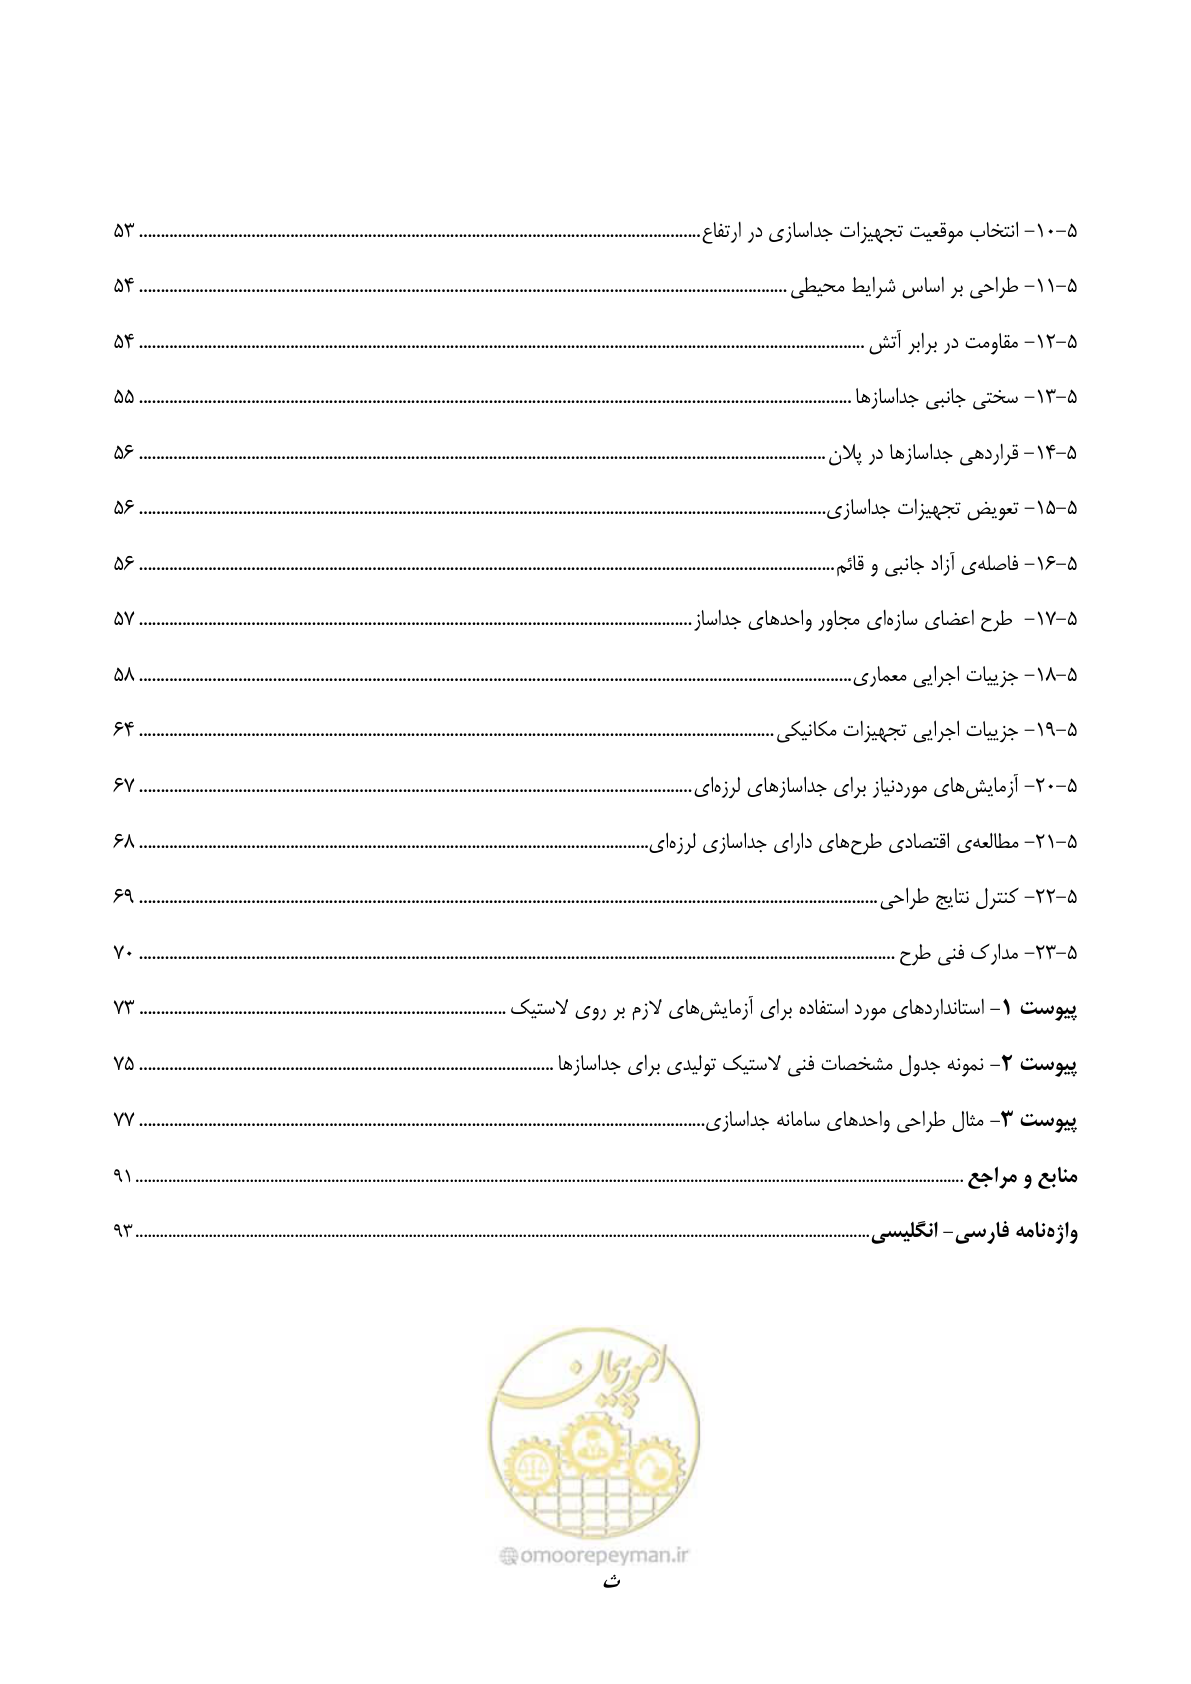 ۵-۱۰- انتخاب موقعیت تجهیزات جداسازی در ارتفاع ........ ۵۳
۵-۱۱- طراحی بر اساس شرایط محیطی ........ ۵۴
۵-۱۲- مقاومت در برابر آتش ........ ۵۴
۵-۱۳- سختی جانبی جداسازها ........ ۵۵
۵-۱۴- قراردهی جداسازها در پلان ........ ۵۶
۵-۱۵- تعویض تجهیزات جداسازی ........ ۵۶
۵-۱۶- فاصله‌ی آزاد جانبی و قائم ........ ۵۶
۵-۱۷- طرح اعضای سازه‌ای مجاور واحدهای جداساز ........ ۵۷
۵-۱۸- جزییات اجرایی معماری ........ ۵۸
۵-۱۹- جزییات اجرایی تجهیزات مکانیکی ........ ۶۴
۵-۲۰- آزمایش‌های موردنیاز برای جداسازهای لرزه‌ای ........ ۶۷
۵-۲۱- مطالعه‌ی اقتصادی طرح‌های دارای جداسازی لرزه‌ای ........ ۶۸
۵-۲۲- کنترل نتایج طراحی ........ ۶۹
۵-۲۳- مدارک فنی طرح ........ ۷۰
پیوست ۱- استانداردهای مورد استفاده برای آزمایش‌های لازم بر روی لاستیک ........ ۷۳
پیوست ۲- نمونه جدول مشخصات فنی لاستیک تولیدی برای جداسازها ........ ۷۵
پیوست ۳- مثال طراحی واحدهای سامانه جداسازی ........ ۷۷
منابع و مراجع ........ ۹۱
واژه‌نامه فارسی- انگلیسی ........ ۹۳
امور پیمان
omoorepeyman.ir
ث